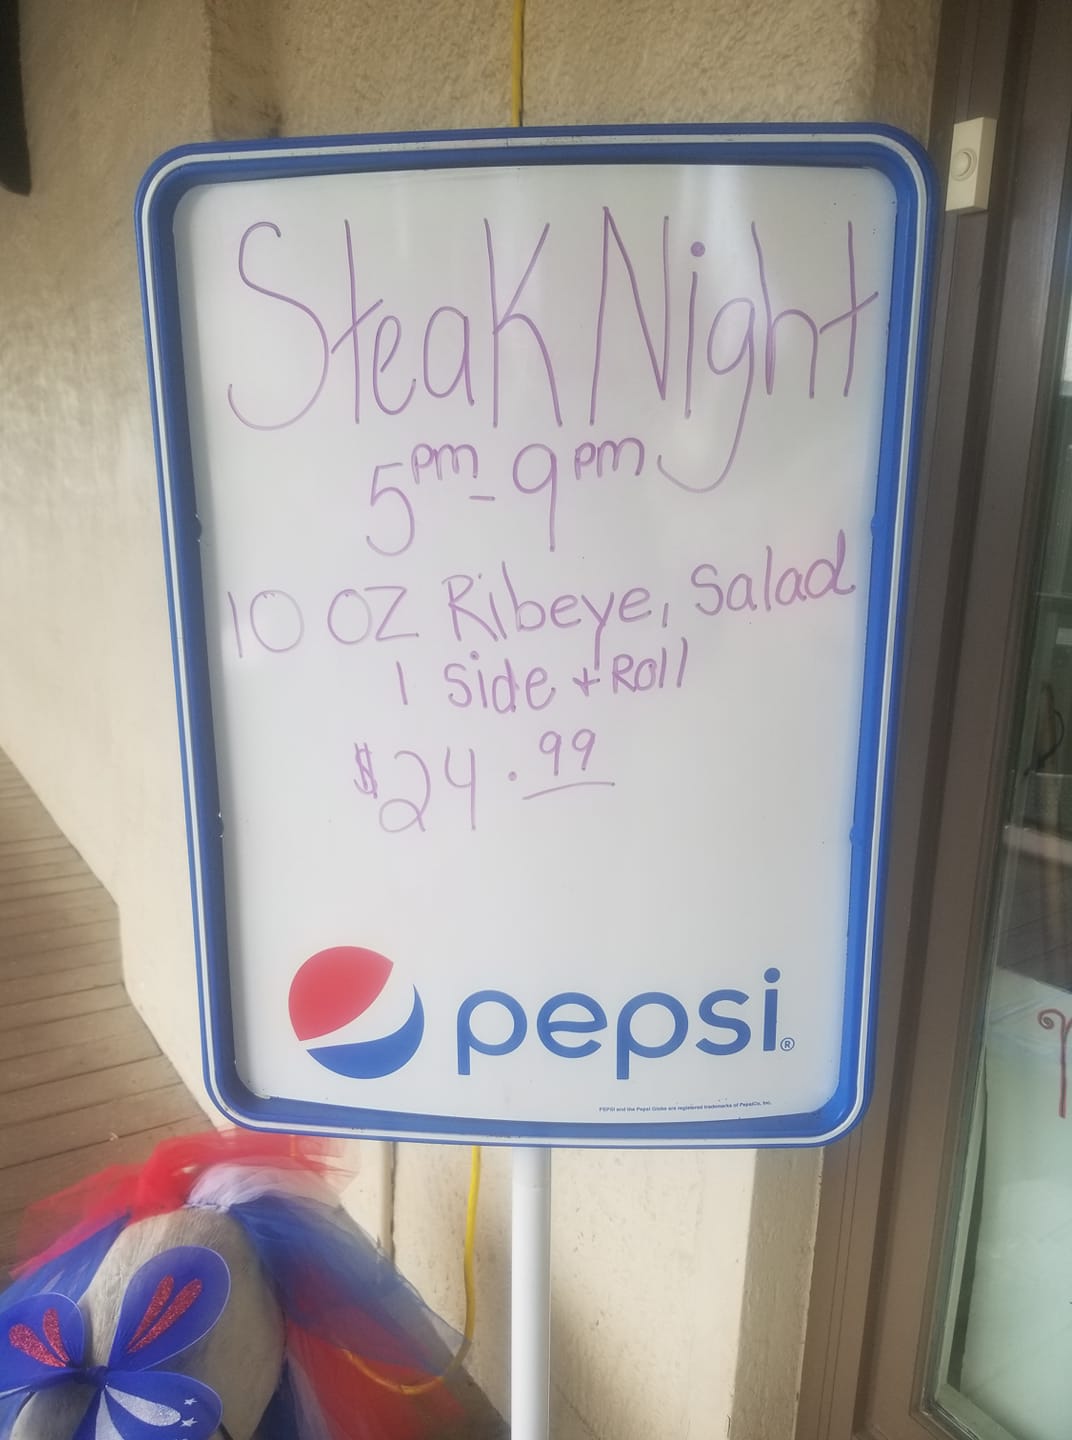 Steak Night
5pm - 9pm
10 oz Ribeye, Salad
1 Side + Roll
$24.99
pepsi®
PEPSI and the Pepsi Globe are registered trademarks of PepsiCo, Inc.